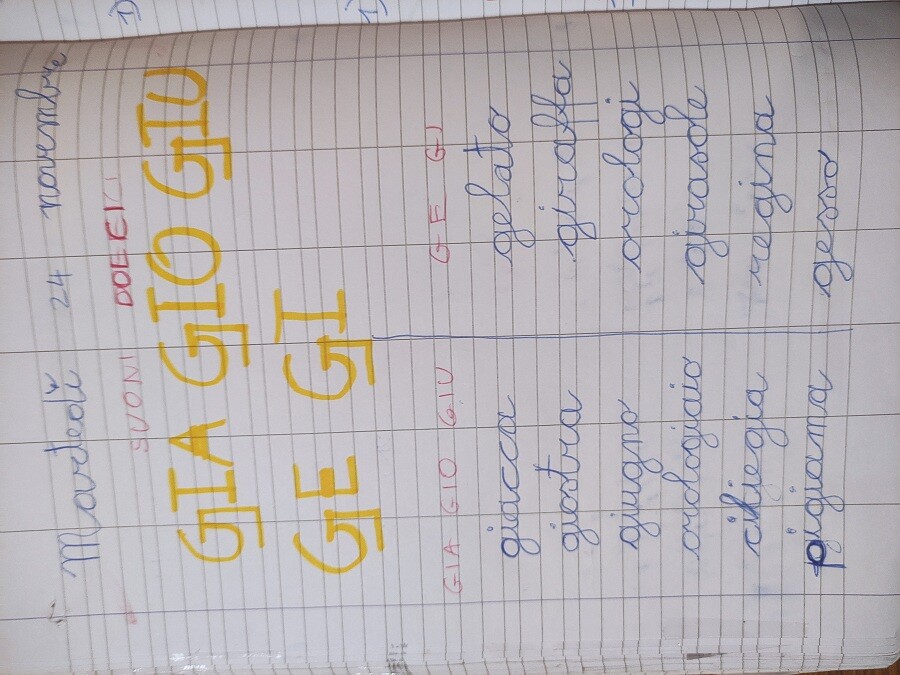 Martedì 24 novembre
SUONI DOLCI
GIA GIO GIU
GE GI
GIA GIO GIU GE GI
giacca gelato
giostra giraffa
giugno orologi
orologiaio girasole
ciliegia regina
pigiama gesso